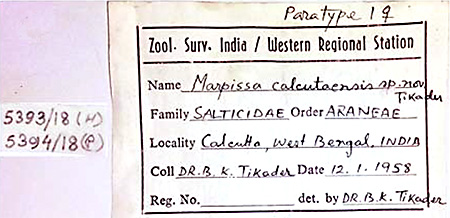 Paratype 1♀
Zool. Surv. India / Western Regional Station
Name Marpissa calcutaensis sp. nov.
Tikader
Family SALTICIDAE Order ARANEAE
Locality Calcutta, West Bengal, INDIA
Coll DR. B. K. Tikader Date 12.1.1958
Reg. No. det. by DR. B. K. Tikader
5393/18 (H)
5394/18 (P)